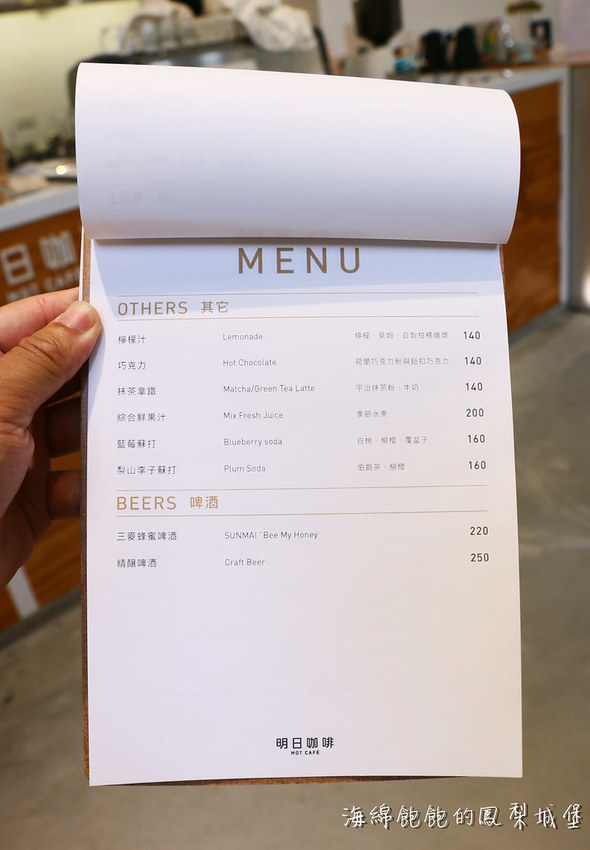 日咖
MOT CAFE
MENU
OTHERS 其它
檸檬汁 Lemonade 檸檬、萊姆、自製柑橘糖漿 140
巧克力 Hot Chocolate 荷蘭巧克力粉與鈕扣巧克力 140
抹茶拿鐵 Matcha/Green Tea Latte 宇治抹茶粉、牛奶 140
綜合鮮果汁 Mix Fresh Juice 季節水果 200
藍莓蘇打 Blueberry soda 白桃、柳橙、覆盆子 160
梨山李子蘇打 Plum Soda 伯爵茶、柳橙 160
BEERS 啤酒
三麥蜂蜜啤酒 SUNMAI "Bee My Honey 220
精釀啤酒 Craft Beer 250
明日咖啡
MOT CAFE
海綿飽飽的鳳梨城堡